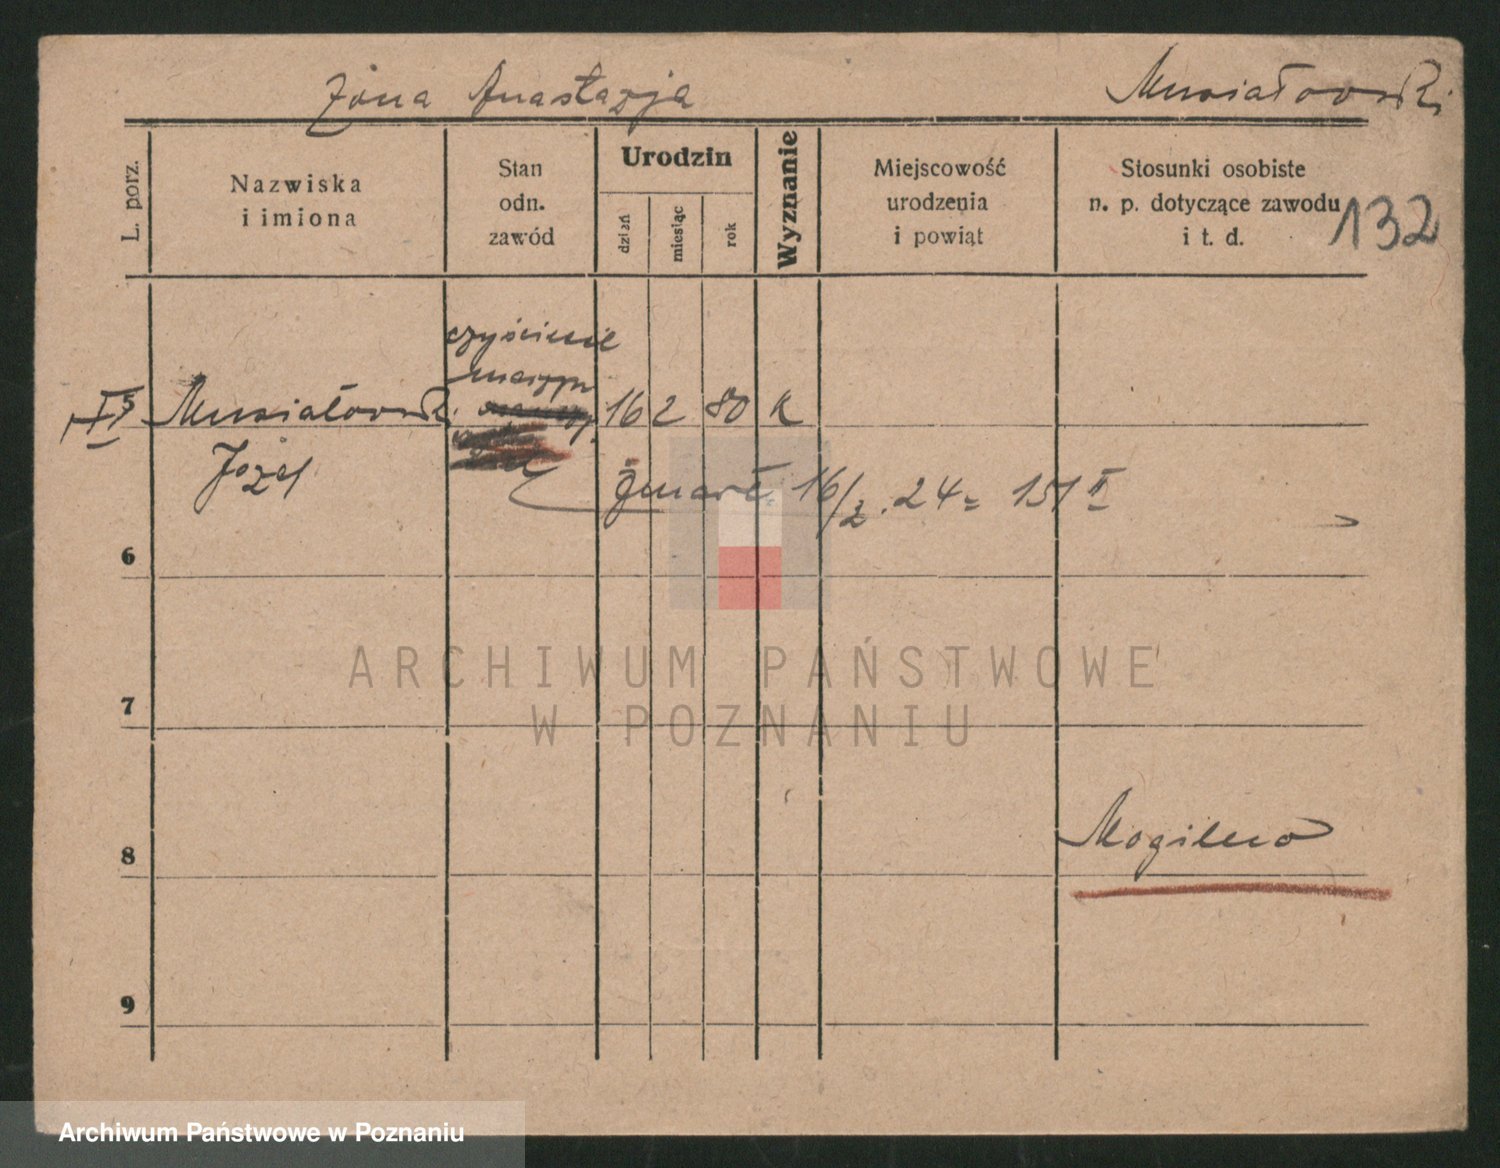 Żona Anastazja
Musiałowski
132
L. porz.
Nazwiska
i imiona
Stan
odn.
zawód
Urodzin
dzień
miesiąc
rok
Wyznanie
Miejscowość
urodzenia
i powiąt
Stosunki osobiste
n. p. dotyczące zawodu
i t. d.
5
Musiałowski
Józef
16 2 80 K
zmarł 16/2. 24 = 151 II
6
7
8
Mogilno
9
ARCHIWUM PAŃSTWOWE
W POZNANIU
Archiwum Państwowe w Poznaniu